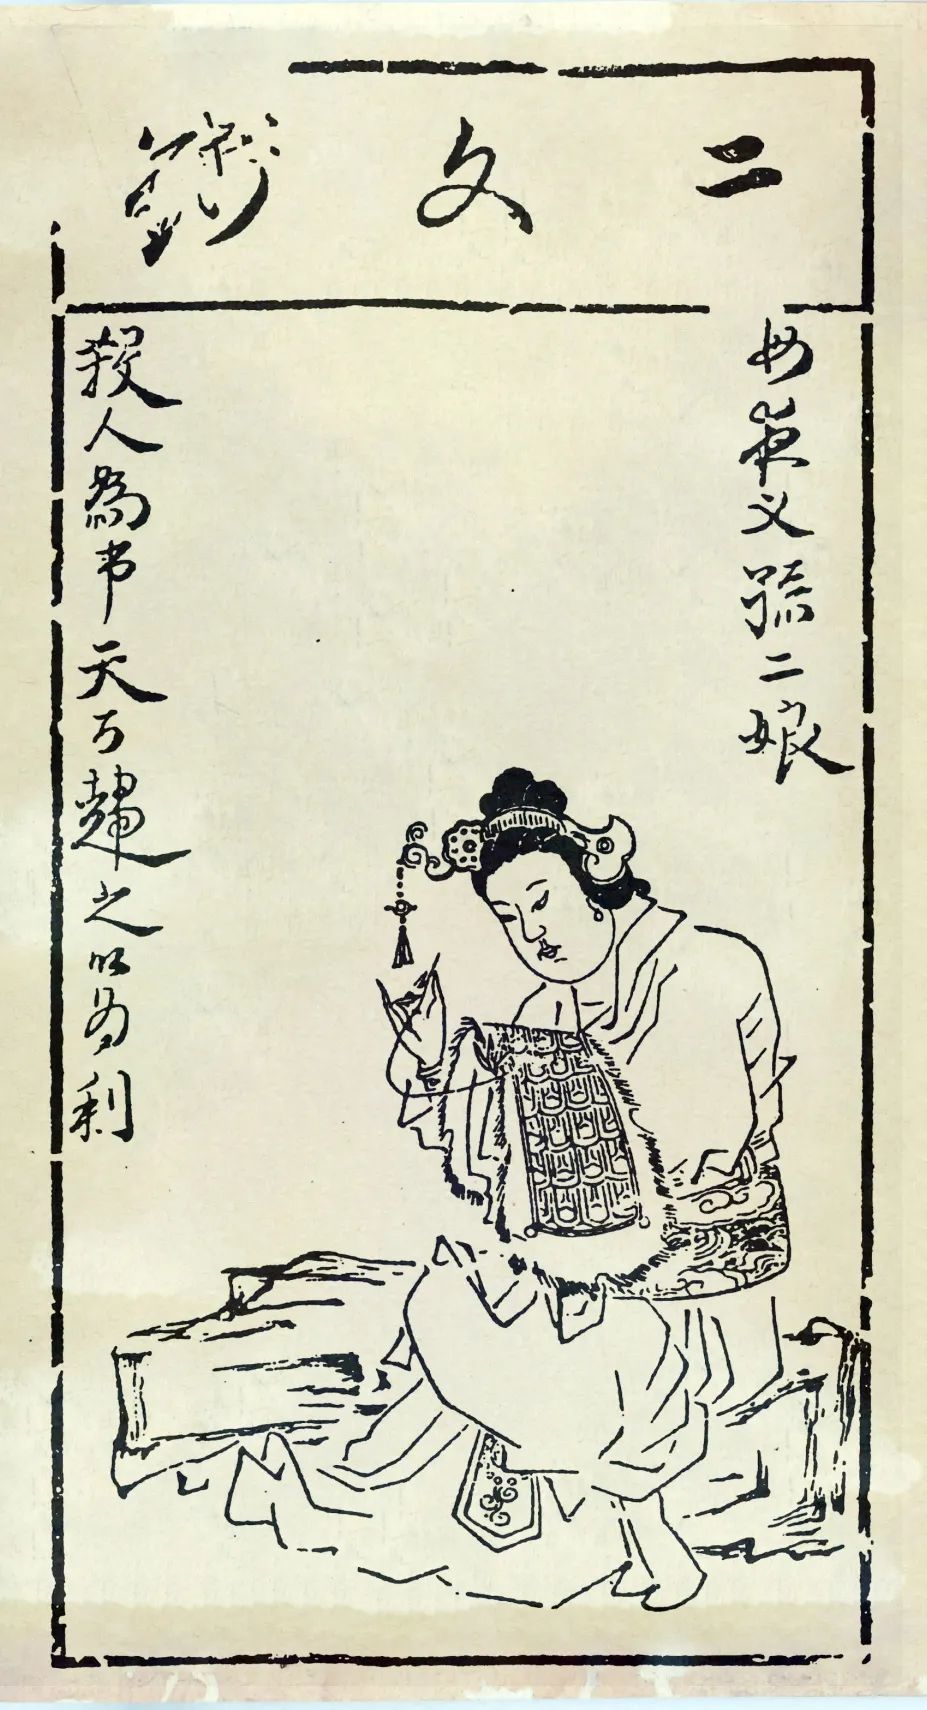 二文錢
母夜叉孫二娘
殺人為市天下之以為利